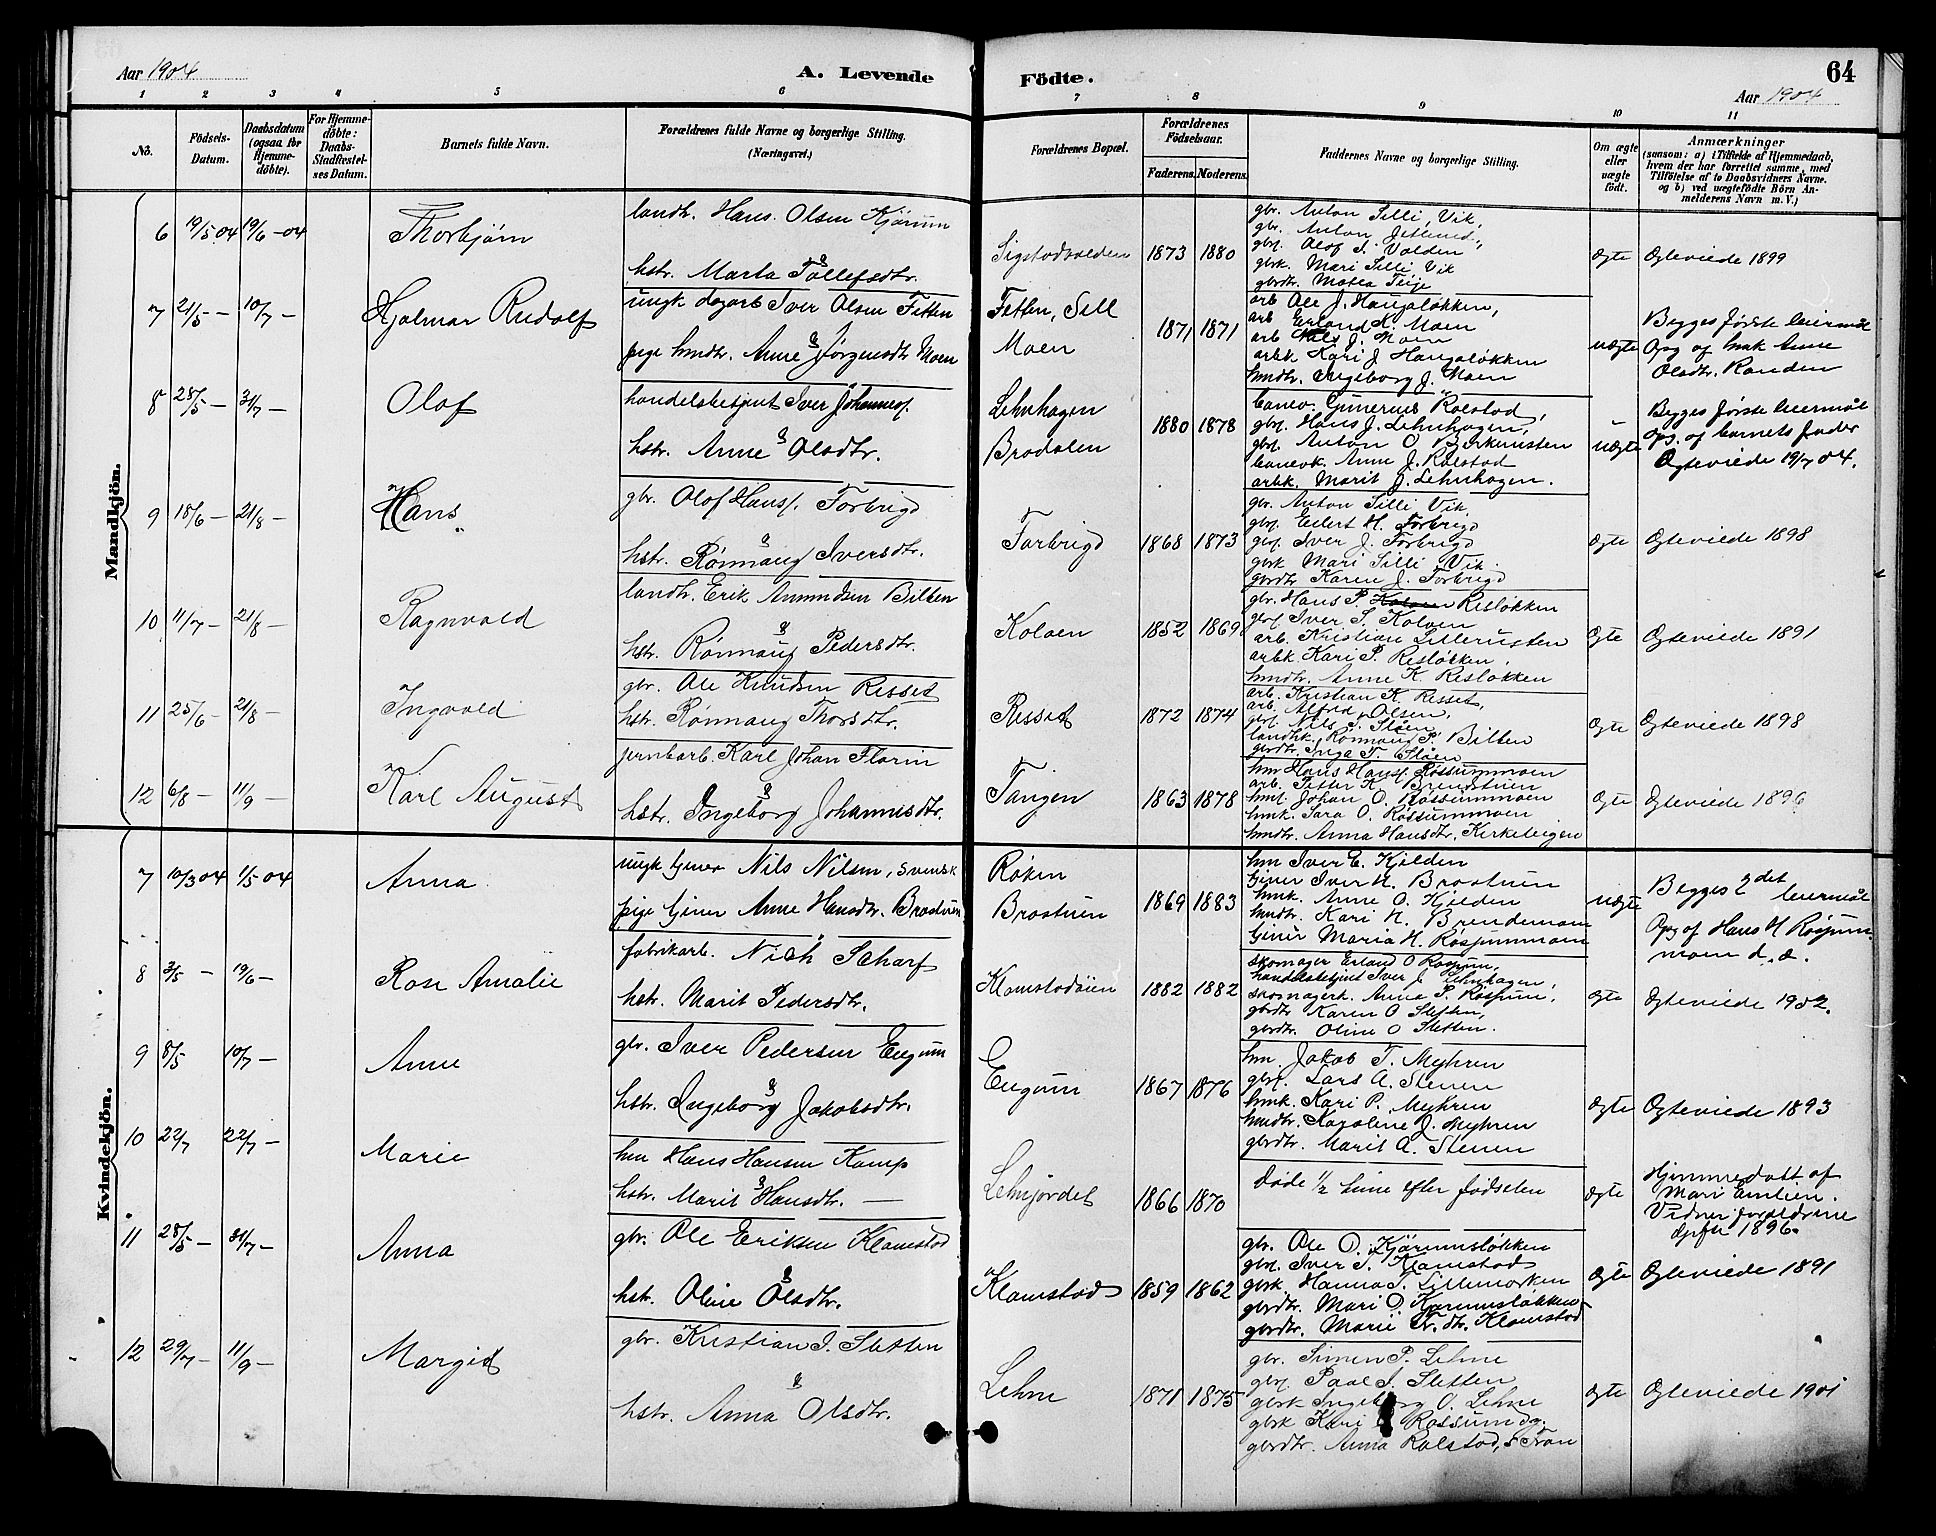 Aar 1904
A. Levende
Födte.
64
Aar 1904
1 2 3 4 5 6 7 8 9 10 11
No.
Födsels-Datum.
Daabsdatum (ogsaa for Hjemme-döbte).
For Hjemme-döbte: Daabs-Stadfæstelses Datum.
Barnets fulde Navn.
Forældrenes fulde Navne og borgerlige Stilling.
(Næringsvei.)
Forældrenes Bopæl.
Forældrenes Födselsaar.
Faderens. Moderens.
Faddernes Navne og borgerlige Stilling.
Om ægte eller uægte födt.
Anmærkninger
(saasom: a) i Tilfælde af Hjemmedaab,
hvem der har forrettet samme, med
Tilföielse af to Daabsvidners Navne.
og b) ved uægtefödte Börn An-
melderens Navn m. V.)
Mandkjön.
6 19/5 04 19/6 -04 Thorbjørn
landh. Hans Olsen Kjørum
&
hstr. Marta Tollefsdtr.
Sigstadvolden 1873 1880
gbr. Anton Silli, Vik,
gbr. Anton Jetlund,
gbsf. Olof I. Volden
gbrk. Mari Silli, Vik
gbrdtr. Matea Teige
Ægte Ægteviede 1899
7 21/5 - 10/7 - Hjalmar Rudolf
ungk dagarb Iver Olsen Fetten
&
pige hmdtr. Anne Jørgensdtr Moen
Fetten, Sell
Moen
1871 1871
arb Ole J. Haugaløkken,
arb Erland K. Moen
arb Nils J. Moen
arbk Kari J Haugaløkken
hmdtr. Ingeborg J. Moen
uægte
Begges første leiermål
Opg af enk Anne
Olsdtr. Randen
8 28/5 - 31/7 - Olaf
handelsbetjent Iver Johannesf.
&
hstr. Anne Olsdtr.
Lehnhagen
Brodalen
1880 1878
banev. Gunerius Rolstad,
gbsf. Hans J. Lehnhagen,
gbsf. Anton O. Bjørkerusten
banevk. Anne J. Rolstad
arbk. Marit J. Lehnhagen.
uægte
Begges første leiermål
Opg. af barnets fader
Ægteviede 19/7 04.
9 18/6 - 21/8 - Hans
gbr. Olof Hansf. Forbrigd
&
hstr. Rønnaug Iversdtr.
Forbrigd 1868 1873
gbr. Anton Silli Vik.
gbsf. Eilert H. Forbrigd
gbsf. Iver J. Forbrigd
gbrk Mari Silli, Vik.
gbrdtr Karen J. Forbrigd
Ægte Ægteviede 1898
10 11/7 - 21/8 - Ragnvald
landh. Erik Amundsen Bilben
&
hstr. Rønnaug Pedersdtr.
Koloen 1852 1869
gbr. Hans P. Risløkken
gbsf. Iver S. Koloen
arb. Kristian Lillerusten
arbk Kari P. Risløkken.
hmdtr. Anne K. Risløkken
Ægte Ægteviede 1891
11 25/6 - 21/8 - Ingvald
gbr. Ole Knudsen Risset
hstr. Rønnaug Thorsdtr.
Risset 1872 1874
arb. Kristian K. Risset,
arb. Alfred Olsen,
gbsf. Nils T. Sløen
landhk. Rønnaug P. Bilben
gbrdtr. Inga T. Sløen
Ægte Ægteviede 1898
12 6/8 - 11/9 - Karl August
jernbarb. Karl Johan Florin
&
hstr. Ingeborg Johannisdtr.
Tangen 1863 1878
hm Hans Hansf. Røssummoen
arb. Petter K. Brendstuen
hmf. Johan O. Røssummoen
hmk. Sara O. Røssummoen
hmdtr. Anna Hansdtr. Kirkebigen
Ægte Ægteviede 1896
Kvindekjön.
7 10/3 04 1/5 04 Anna
ungk tjener Nils Nilsen, svensk
pige tjener Anne Hansdtr. Brostuen
Røken
Brostuen
1869 1883
hm Iver E. Kjelden
tjener Iver H. Brostuen
hmk. Anne O. Kjelden
hmdtr. Kari N. Brendemoen
tjener Maria H. Røssummoen
uægte
Begges 2det leiermål
Opg af Hans H Røssum-
moen d. d.
8 3/5 - 19/6 - Rosa Amalie
fabrikarb. Nich Scharf
&
hstr. Marit Pedersdtr.
Klomstadøien 1882 1882
skomager Erland O Røssum,
handelsbetjent Iver J Lehnhagen,
skomagerk. Anna P. Røssum,
gbrdtr Karen O Sletten,
gbrdtr. Oline O Sletten.
Ægte Ægteviede 1902.
9 8/5 10/7 - Anne
gbr. Iver Pedersen Engum
&
hstr. Ingeborg Jakobsdtr.
Engum 1867 1876
hm Jakob T. Myhren
gbsf. Lars A. Stenen
hmk. Kari P. Myhren
hmdtr. Karoline J. Myhren
gbrdtr. Marit A. Stenen
Ægte Ægteviede 1893
10 22/7 22/7 - Marie
hm Hans Hansen Kamp
&
hstr. Marit Hansdtr. —
Lehnjordet 1866 1870
døde 1/2 time efter fødselen
Ægte
Hjemmedøbt af
Mari Enlien.
Vidner forældrene
1896.
11 28/5 - 31/7 - Anna
gbr. Ole Eriksen Klomstad
&
hstr. Oline Olsdtr.
Klomstad 1859 1862
gbr. Ole O. Kjørumsløkken
gbsf. Iver T. Klomstad
gbrk. Hanna T. Lillemorken
gbrdtr. Mari O Kjørumsløkken
gbrdtr. Marie Tr. dtr. Klomstad
Ægte Ægteviede 1891
12 29/7 - 11/9 - Margit
gbr. Kristian I. Sletten
&
hstr. Anna Olsdtr.
Lehne 1871 1875
gbr. Simen P. Lehne
gbsf. Paal I. Sletten
gbrk Ingeborg O. Lehne
gbrk Kari O Røssum
gbrdtr. Anna Rolstad, S Fron
Ægte Ægteviede 1901